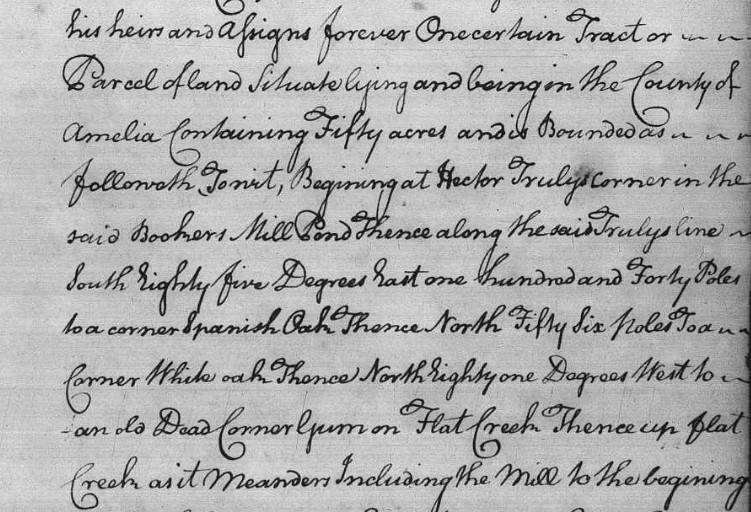 his heirs and Assigns forever One certain Tract or
Parcel of land Situate lying and being in the County of
Amelia Containing Fifty acres and is Bounded as
followeth, Towit, Begining at Hector Trulys corner in the
said Bookers Mill Pond Thence along the said Trulys line
South Eighty five Degrees East one hundred and Forty Poles
to a corner Spanish Oak Thence North Fifty Six poles To a
Corner White oak Thence North Eighty one Degrees West to
an old Dead Corner Gum on Flat Creek Thence up flat
Creek as it Meanders Including the Mill to the begining